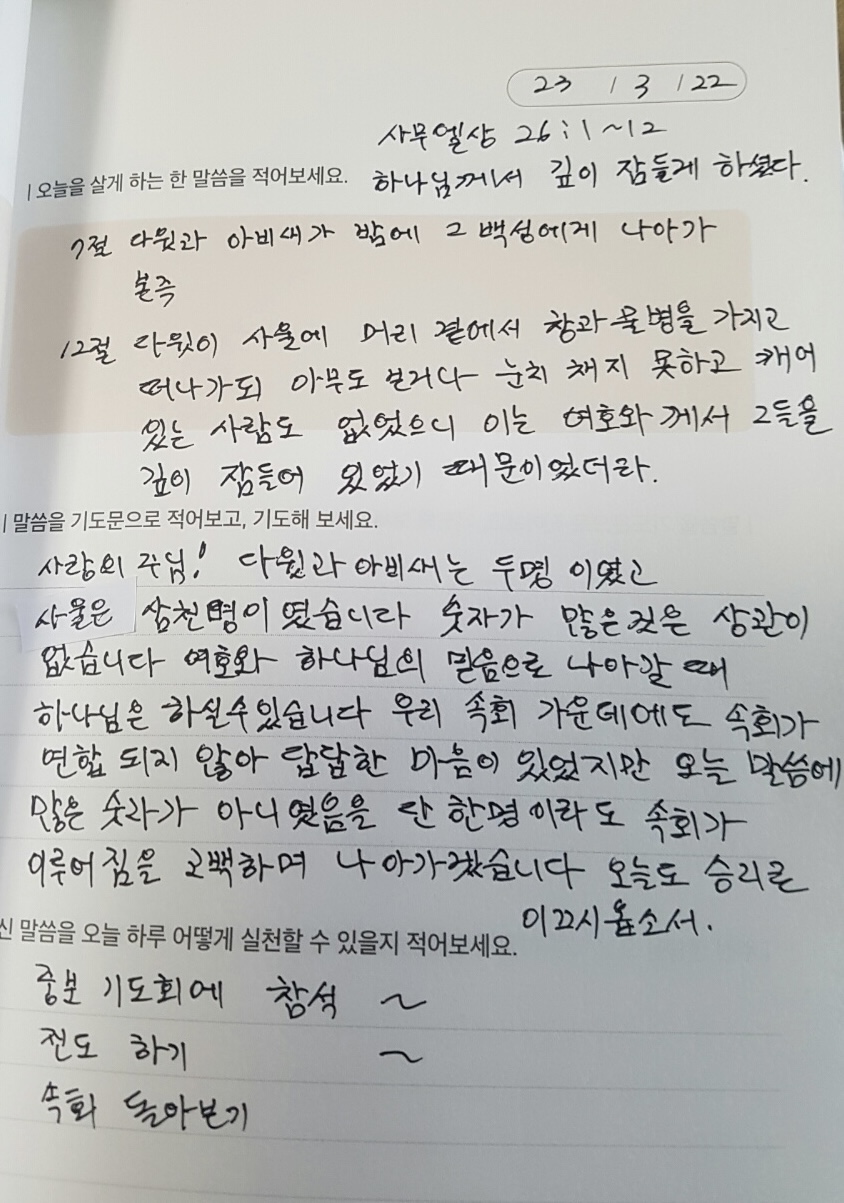 23 / 3 / 22
사무엘상 26:1~12
| 오늘을 살게 하는 한 말씀을 적어보세요. 하나님께서 깊이 잠들게 하셨다.
7절 다윗과 아비새가 밤에 그 백성에게 나아가
본즉
12절 다윗이 사울에 머리 곁에서 창과 물병을 가지고
떠나가되 아무도 보거다 눈치 채지 못하고 깨어
있는 사람도 없었으니 이는 여호와 께서 그들을
깊이 잠들어 있었기 때문이었더라.
| 말씀을 기도문으로 적어보고, 기도해 보세요.
사랑의 주님! 다윗과 아비새는 두명 이였고
사울은 삼천명이 였습니다 숫자가 많은것은 상관이
없습니다 여호와 하나님의 믿음으로 나아갈 때
하나님은 하실수있습니다 우리 속회 가운데에도 속회가
연합 되지 않아 답답한 마음이 있었지만 오늘 말씀에
많은 숫라가 아니였음을 단 한명이라도 속회가
이루어짐을 고백하며 나아가겠습니다 오늘도 승리로
이끄시옵소서.
신 말씀을 오늘 하루 어떻게 실천할 수 있을지 적어보세요.
중보 기도회에 참석 ~
전도 하기 ~
속회 돌아보기